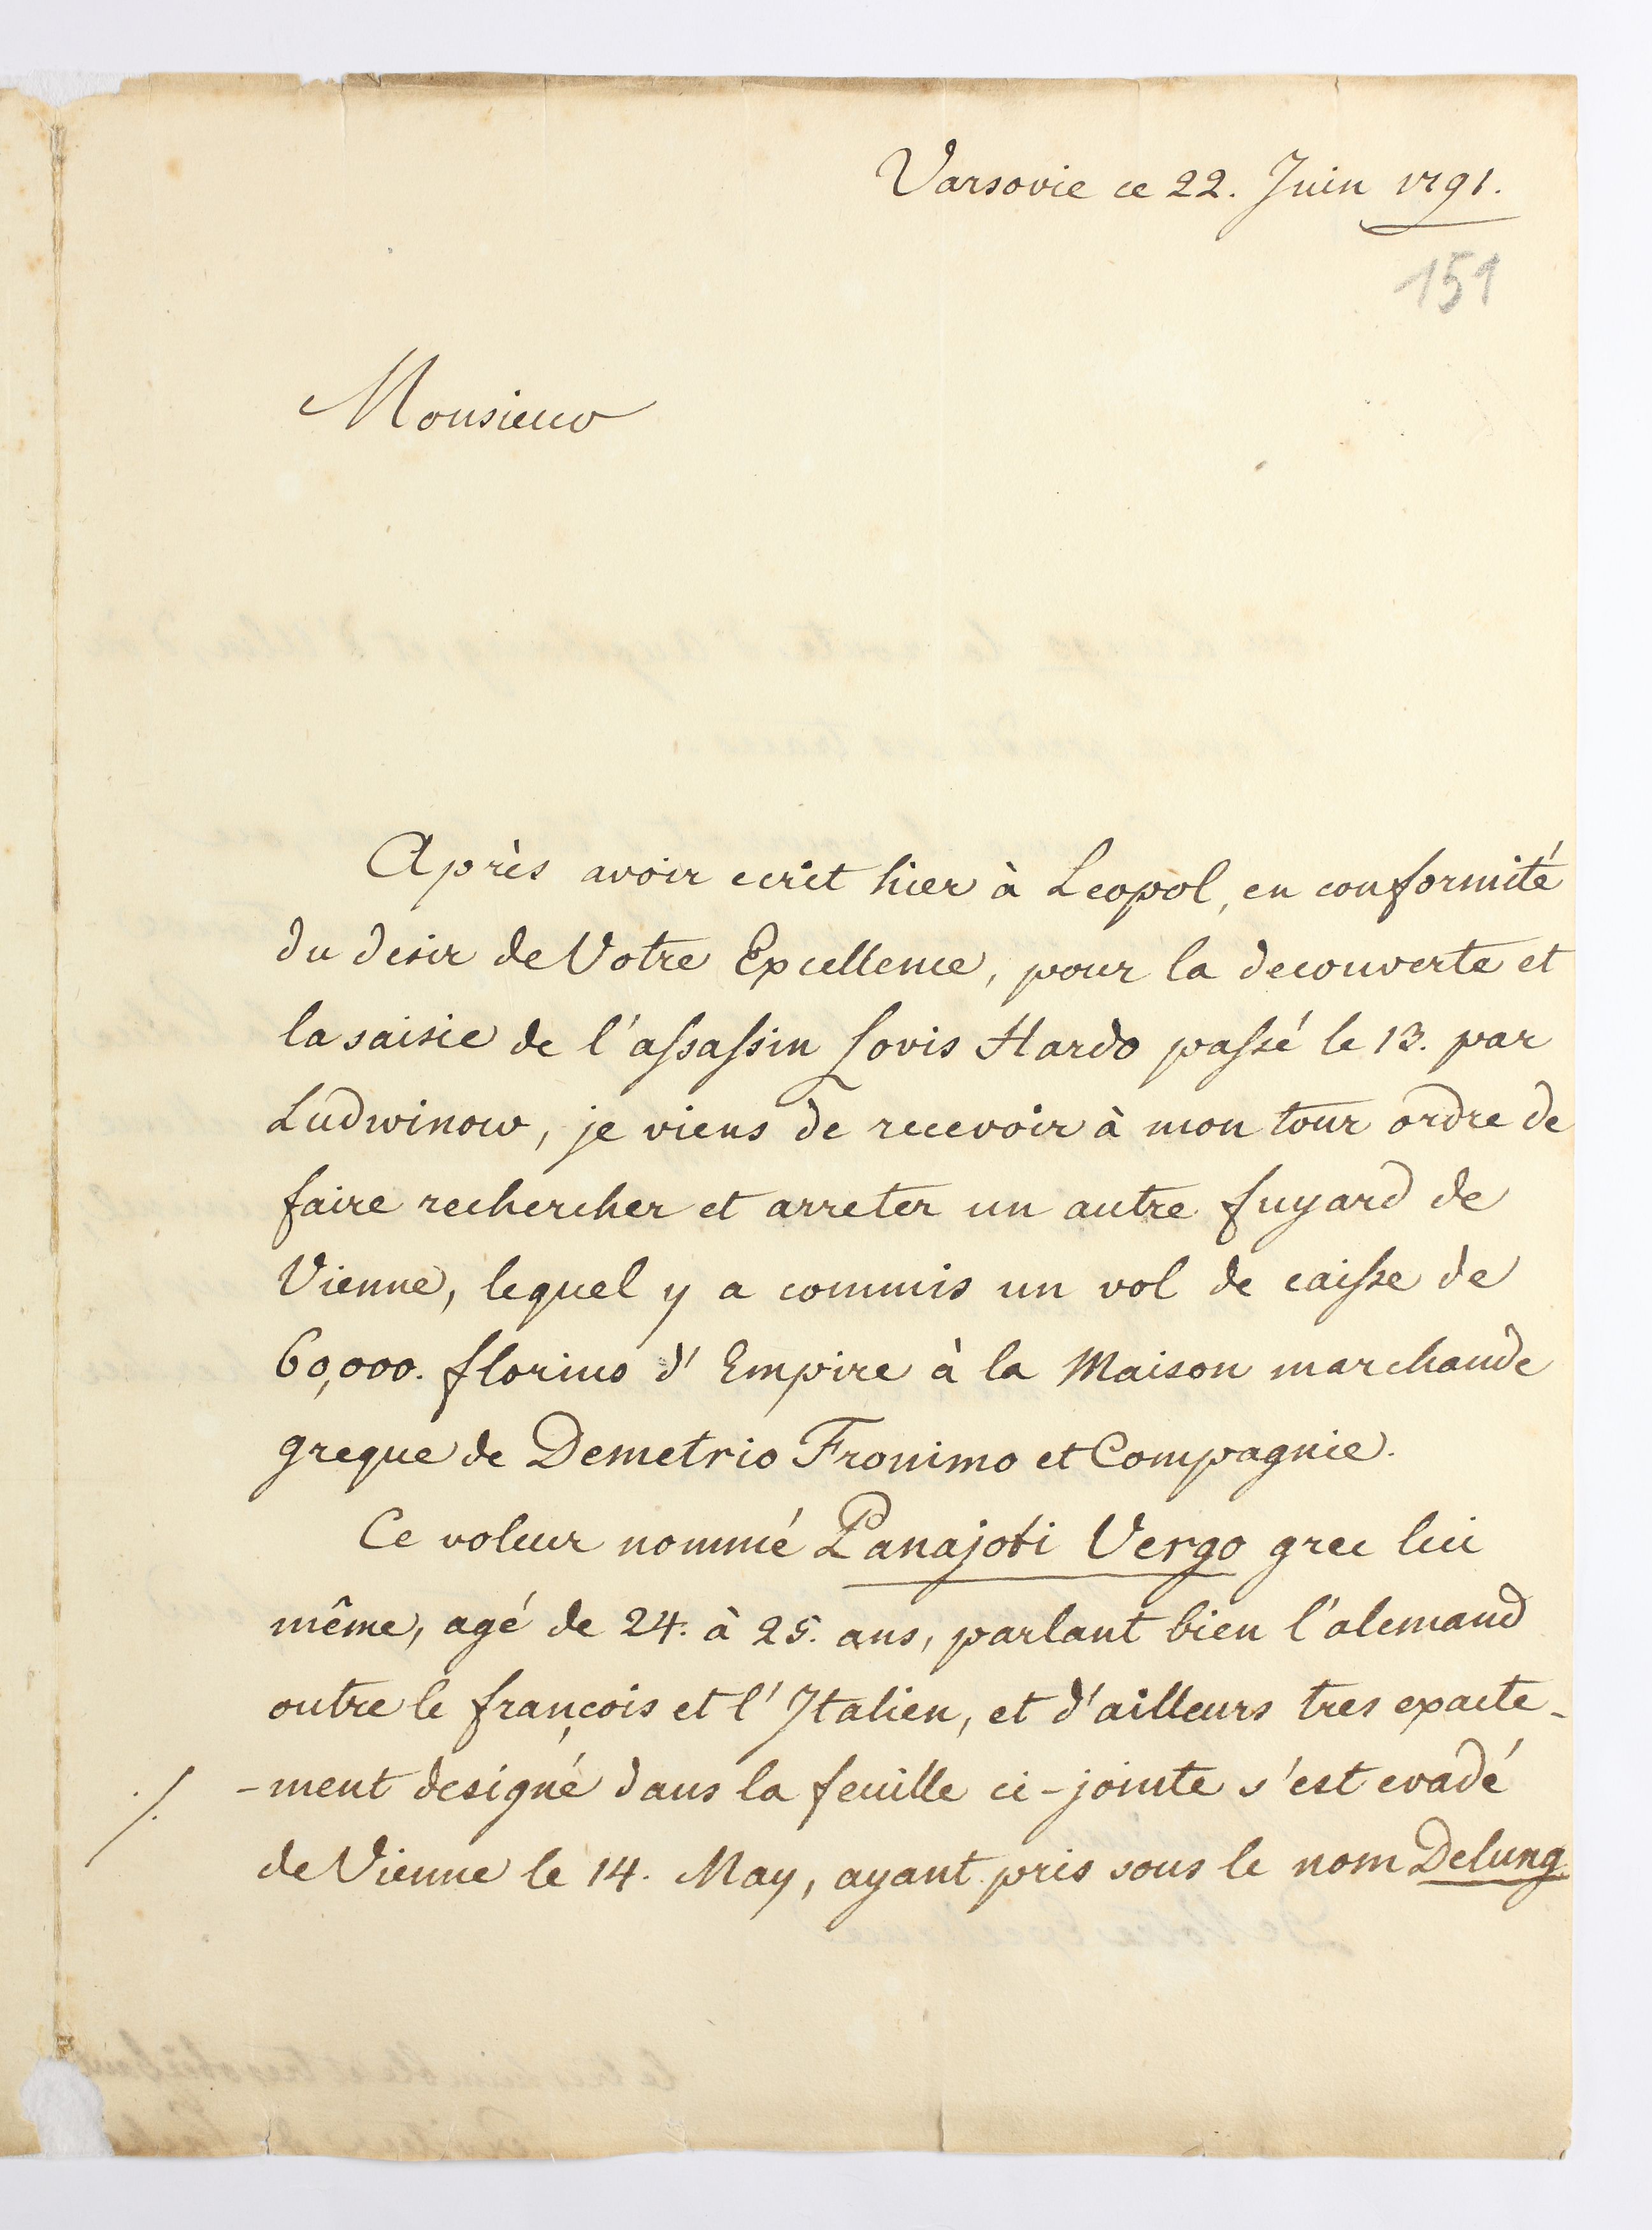 Varsovie ce 22. Juin 1791.
151
Monsieur
Après avoir ecrit hier à Leopol, en conformité
du desir de Votre Excellence, pour la decouverte et
la saisie de l'assassin Lovis Hardo passé le 13. par
Ludwinow, je viens de recevoir à mon tour ordre de
faire rechercher et arreter un autre fuyard de
Vienne, lequel y a commis un vol de caisse de
60,000. florins d'Empire à la Maison marchande
greque de Demetrio Fronimo et Compagnie.
Ce voleur nommé Panajoti Vergo grec lui
même, agé de 24. à 25. ans, parlant bien l'alemand
outre le françois et l'Italien, et d'ailleurs tres exacte-
./. -ment designé dans la feuille ci-jointe s'est evadé
de Vienne le 14. May, ayant pris sous le nom Delung